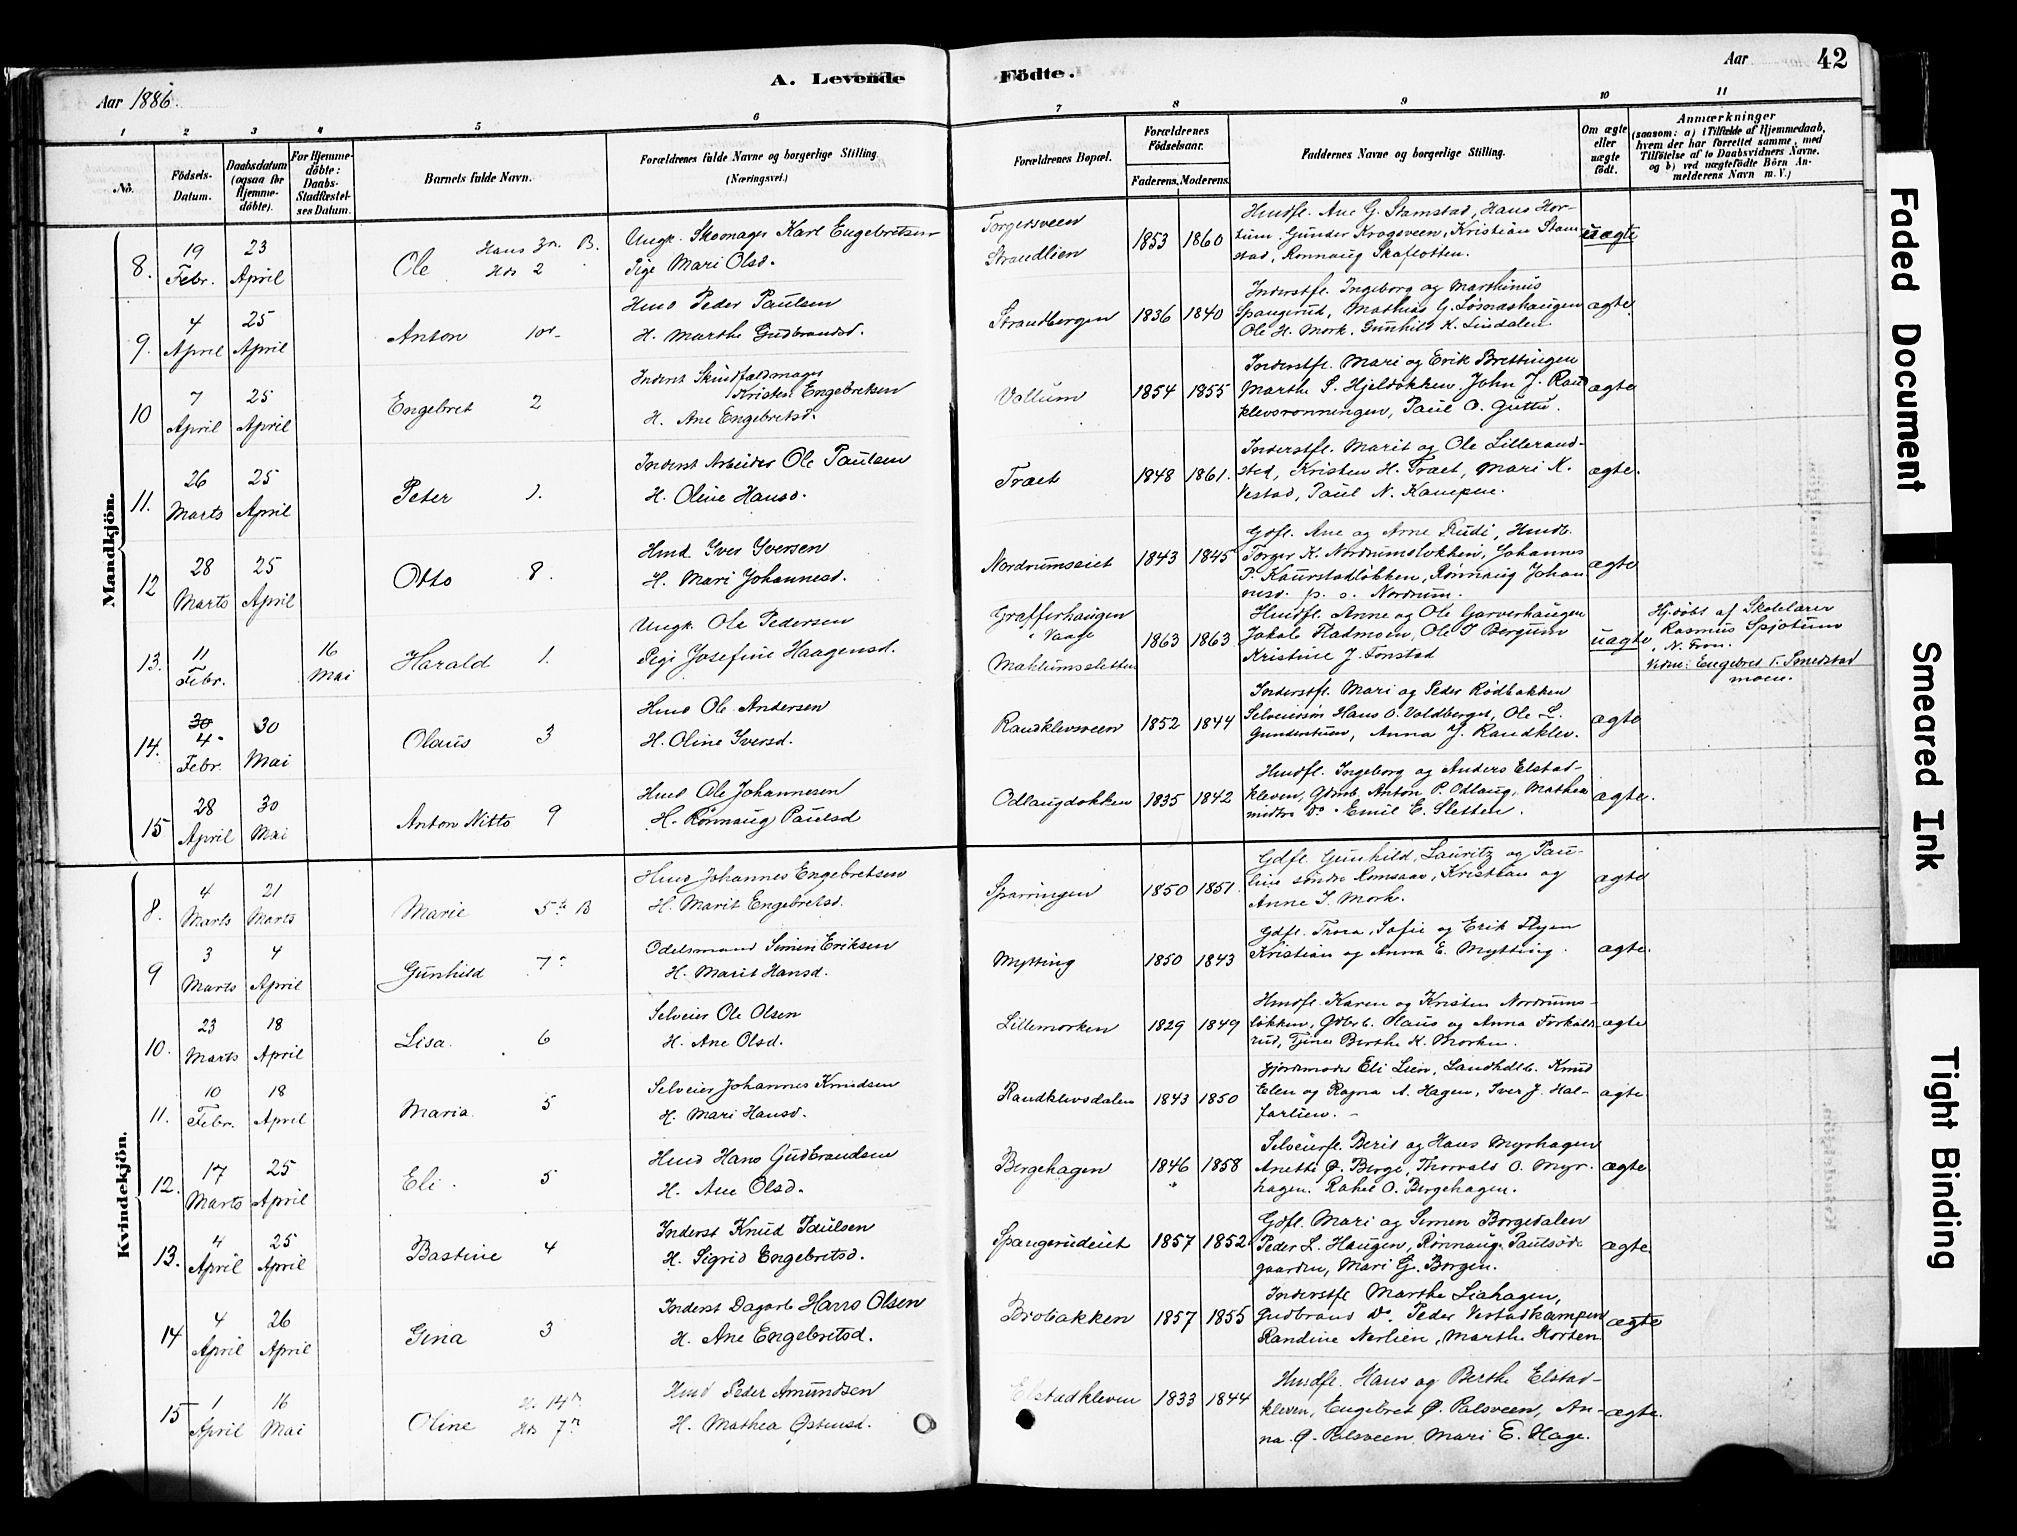 A. Levende Födte.
Aar 1886.
Aar 42
1 2 3 4 5 6 7 8 9 10 11
No.
Födsels-Datum.
Daabsdatum (ogsaa før Hjemme-døbte).
For Hjemme-döbte: Daabs-Stadfæstel-ses Datum.
Barnets fulde Navn.
Forældrenes fulde Navne og borgerlige Stilling
(Næringsvei.)
Forældrenes Bopæl.
Forældrenes Födselsaar.
Faderens. Moderens.
Faddernes Navne og borgerlige Stilling.
Om ægte eller uægte födt.
Anmærkninger
(saasom: a) i Tilfælde af Hjemmedaab, hvem der har forrettet samme, med Tilföielse af to Daabsvidners Navne, og b) ved uægtefödte Börn Anmelderens Navn m. V.)
Mandkjön.
8. 19 Febr. 23 April Ole Hans 3n. B. Hds 2
Ungk. Skomager Karl Engebretsen
Pige Mari Olsd.
Torgersveen
Strandlien
1853 1860
Hmdfl. Ane G. Stamstad, Hans Hor-
tum, Gunder Krogsveen, Kristian Stam-
stad, Rønnaug Skaflotten.
uægte
9. 4 April 25 April Anton
Hmd Peder Paulsen
H. Marthe Gudbrandsd.
Strandbergen 1836 1840
Inderstfl. Ingeborg og Marthinus
Spangerud, Mathias G. Lømoshaugen
Ole H. Mork, Gunhild K. Lindalen
ægte.
10 7 April 25 April Engebret 2
Inderst Skindfældmager
Kristen Engebretsen
H. Ane Engebretsd.
Vollum 1854 1855
Inderstfl. Mari og Erik Brettingen
Marthe S. Hjeldokken, John J. Rand
klevsrønningen, Paul O. Guttu.
ægte
11. 26 Marts 25 April Peter 1.
Inderst Arbeider Ole Paulsen
H. Oline Hansd.
Træet 1848 1861.
Inderstfl. Marit og Ole Lillerand-
sted, Kristen H. Træet, Mari K.
Vestad, Paul N. Kampen.
ægte.
12 28 Marts 25 April Otto 8.
Hmd Yver Yversen
H. Mari Johannesd.
Nordrumseiet 1843 1845
Gdfl. Ane og Arne Rudi, Hmdb.
Torger K. Nordrumsløkken, Johannes
P. Kaurstadløkken, Rønnaug Johan
nesd. p. s. Nordrum.
ægte
13. 11 Febr. 16 Mai Harald 1.
Ungk. Ole Pedersen
Pige Josefine Haagensd.
Grafferhaugen
i Vaage
Mahlumssletten
1863 1863
Hmdfl. Anne og Ole Garverhaugen
Jakob Fladmoen, Ole I Bergum
Kristine J. Tonstad
uægte
Hj.døbt af Skolelærer
Rasmus Spjotum
N. Fron.
Vidne: Engebret T. Smedstad
moen.
14. 30 4 Febr. 30 Mai Olaus 3
Hmd Ole Andersen
H. Oline Yversd.
Randklevsveen 1852 1844
Inderstfl. Mari og Peder Rødbakken
Selveiersøn Hans O. Voldberget, Ole L.
Gunderstuen, Anna J. Randklev.
ægte
15 28 April 30 Mai Anton Nitto 9
Hmd Ole Johannesen
H. Rønnaug Paulsd
Odlaugdokken 1835 1842
Hmdfl. Ingeborg og Anders Elstad-
kleven, Gdmb. Anton P. Odlaug, Mathea
midtre Do. Emil E. Sletten.
ægte.
Kvindekjön.
8. 4 Marts 21 Marts Marie 5te B
Hmd Johannes Engebretsen
H. Marit Engebretsd.
Sparringen 1850 1851.
Gdfl. Gunhild, Lauritz og Pau-
line søndre Romsaas, Kristian og
Anne I. Mork.
ægte
9 3 Marts 4 April Gunhild 7
Odelsmand Simen Eriksen
H. Marit Hansd.
Mytting 1850 1843
Gdfl. Thora, Sofie og Erik Flyen
Kristian og Anna E. Mytting.
ægte.
10. 23 Marts 18 April Lisa. 6
Selveier Ole Olsen
H. Ane Olsd.
Lillemorken 1829 1849
Hmdfl. Karen og Kristen Nordrums-
løkken, Gdbrb. Hans og Anna Forkals-
rud, Tjener Berthe K. Morken.
ægte
11. 10 Febr. 18 April Maria. 5
Selveier Johannes Knudsen
H. Mari Hansd.
Randklevsdalen 1843 1850
Gjordemoder Eli Lien, Landhdlb. Knud
Elen og Ragna A. Hagen, Iver J. Hal-
farlien.
ægte
12. 17 Marts 25 April Eli. 5
Hmd Hans Gudbrandsen
H. Ane Olsd.
Bergehagen 1846 1858
Selveierfl. Berit og Hans Myrhagen
Anette Ø. Berge, Thorvald O. Myr-
hagen. Rahel O. Bergehagen.
ægte
13. 4 April 25 April Bastine 4
Inderst Knud Paulsen
H. Sigrid Engebretsd.
Spangerudeiet 1857 1852
Gdfl. Mari og Simen Borgedalen
Peder L. Haugen, Rønnaug Paulsøde
gaarden, Mari G. Borgen.
ægte
14 4 April 26 April Gina 3
Inderst Dagarb Hans Olsen
H. Ane Engebretsd.
Brobakken 1857 1855
Inderstfl. Marthe Liahagen,
Gudbrand Do. Peder Vestadkampen
Randine Nerlien, Marthe Horten
ægte
15 1 April 16 Mai Oline H. 14n Hds 7n
Hmd Peder Amundsen
H. Mathea Østensd.
Elstadkleven 1833 1844
Hmdfl. Hans og Berthe Elstad-
kleven, Engebret Ø. Palsveen, An-
na Ø. Palsveen, Mari E. Hage.
ægte.
Faded Document
Smeared Ink
Tight Binding